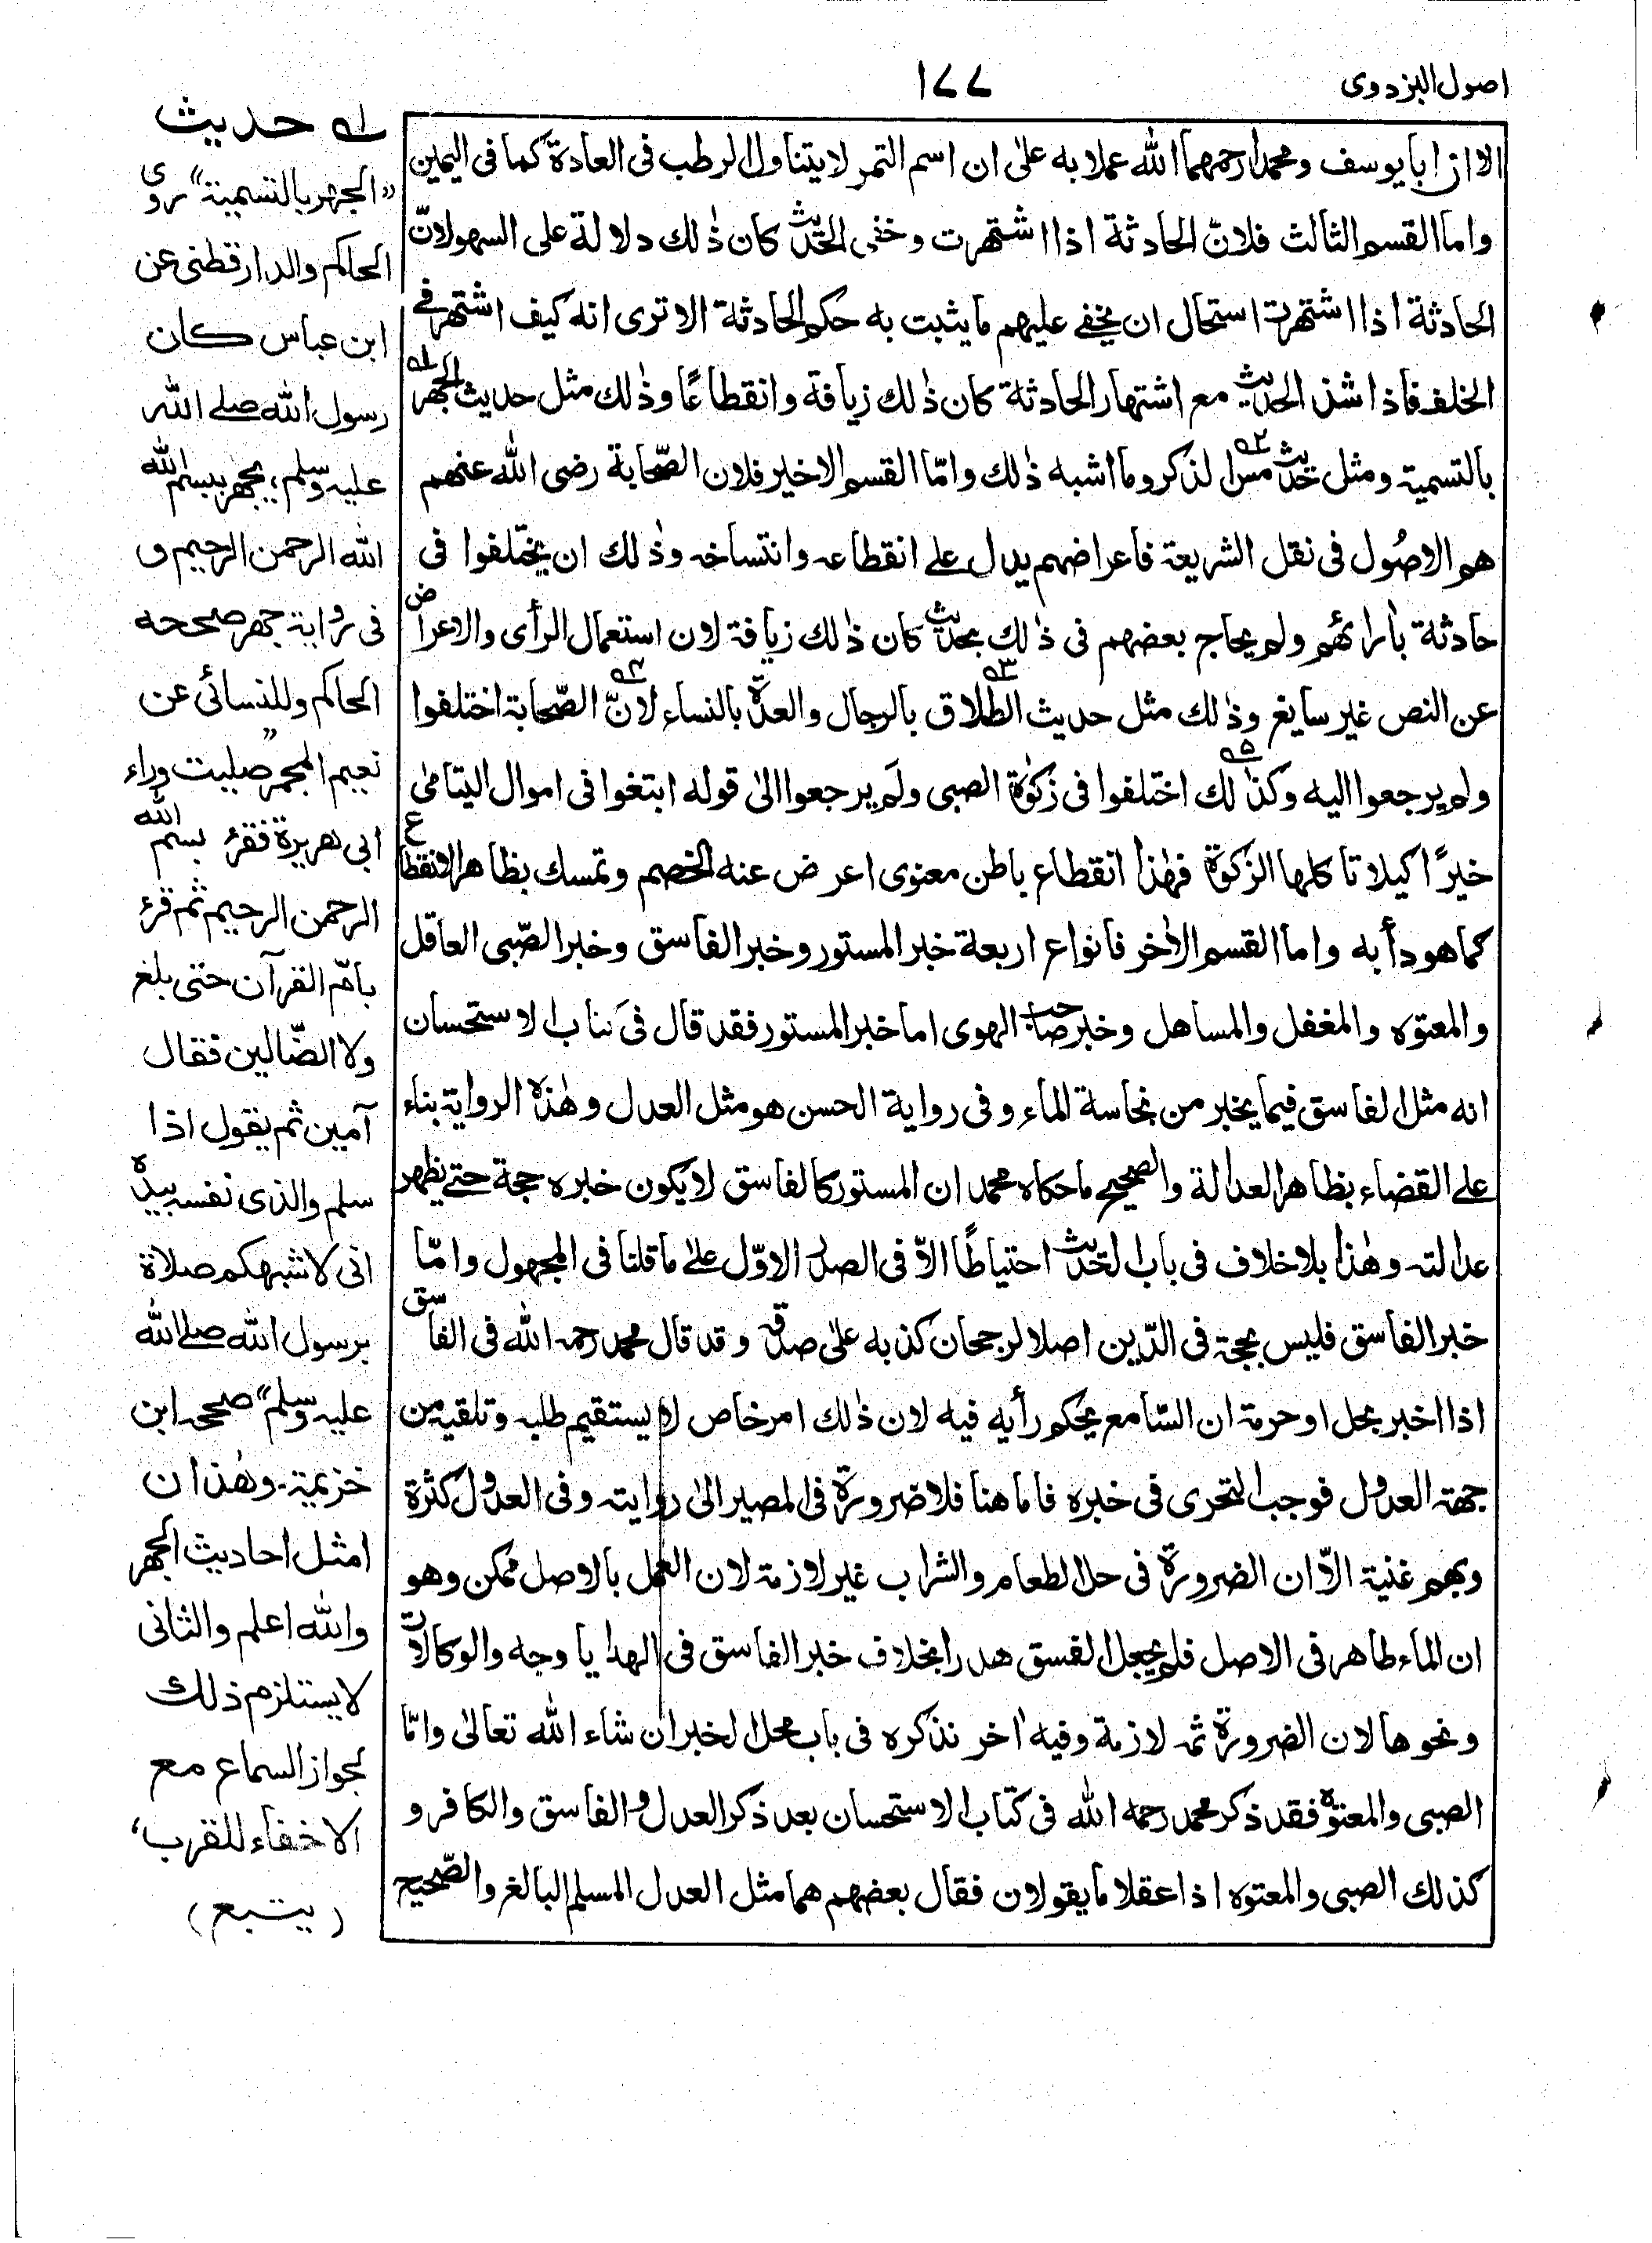 اصول البزدوى
١٧٧
الا ان ابا يوسف ومحمدا رحمهما الله عملا به على ان اسم التمر لا يتناول الرطب فى العادة كما فى اليمين
واما القسم الثالث فلانّ الحادثة اذا اشتهرت وخفى الحديث كان ذٰلك دلالة على السهو لانّ
الحادثة اذا اشتهرت استحال ان يخفے عليهم ما يثبت به حكم الحادثة الا ترى انه كيف اشتهر فے
الخلف فاذا شذ الحديث مع اشتهار الحادثة كان ذٰلك زيافة وانقطاعًا وذٰلك مثل حديث الجهر ١ه
بالتسمية ومثل حديث مس ٢ه الذكر وما اشبه ذٰلك وامّا القسم الاخير فلان الصّحابة رضى الله عنهم
هم الاصُول فى نقل الشريعة فاعراضهم يدل علے انقطاعه وانتساخه وذٰلك ان يختلفوا فى
حادثة بآرائهم ولم يحاج بعضهم فى ذٰلك بحديث كان ذٰلك زيافة لان استعمال الرأى والاعراض
عن النص غير سايغ وذٰلك مثل حديث الطلاق ٣ه بالرجال والعدّة بالنساء ٤ه لانّ الصّحابة اختلفوا
ولم يرجعوا اليه وكذٰلك ٥ه اختلفوا فى زكوٰة الصبى ولم يرجعوا الىٰ قوله ابتغوا فى اموال اليتامىٰ
خيرًا كيلا تاكلها الزكوٰة فهٰذا انقطاع باطن معنوى اعرض عنه الخصم وتمسك بظاهر الانقطاع
كما هو دأبه واما القسم الاٰخر فانواع اربعة خبر المستور وخبر الفاسق وخبر الصّبى العاقل
والمعتوه والمغفل والمساهل وخبر صاحب الهوى اما خبر المستور فقد قال فى كتاب الاستحسان
انه مثل الفاسق فيما يخبر من نجاسة الماء وفى رواية الحسن هو مثل العدل وهٰذه الرواية بناء
علے القضاء بظاهر العدالة والصحيح ما حكاه محمد ان المستور كالفاسق لا يكون خبره حجة حتے يظهر
عدالته وهٰذا بلا خلاف فى باب الحديث احتياطًا الّا فى الصدر الاوّل علےٰ ما قلنا فى المجهول وامّا
خبر الفاسق فليس بحجة فى الدّين اصلا لرجحان كذبه علىٰ صدقه وقد قال محمد رحمه الله فى الفاسق
اذا اخبر بحل او حرمة ان السّامع يحكم رأيه فيه لان ذٰلك امر خاص لا يستقيم طلبه وتلقيه من
جهة العدول فوجب التحرى فى خبره فاما هنا فلا ضرورة فى المصير الىٰ روايته وفى العدول كثرة
وبهم غنية الّا ان الضرورة فى حل الطعام والشراب غير لازمة لان العمل بالاصل ممكن وهو
ان الماء طاهر فى الاصل فلم يجعل الفسق هدرا بخلاف خبر الفاسق فى الهدايا وجه والوكالات
ونحوها لان الضرورة ثمه لازمة وفيه اٰخر نذكره فى باب محل الخبر ان شاء الله تعالىٰ وامّا
الصبى والمعتوه فقد ذكر محمد رحمه الله فى كتاب الاستحسان بعد ذكر العدل والفاسق والكافر و
كذلك الصبى والمعتوه اذا عقلا ما يقولان فقال بعضهم هما مثل العدل المسلم البالغ والصّحيح
١ه حديث
"الجهر بالتسمية" روى
الحاكم والدارقطنى عن
ابن عباس كان
رسول الله صلے الله
عليه وسلم، يجهر ببسم الله
الله الرحمن الرحيم و
فى رواية جهر صححه
الحاكم وللنسائى عن
نعيم المجمر "صليت وراء
ابى هريرة فقرء بسم الله
الرحمن الرحيم ثم قرء
بامّ القرآن حتى بلغ
ولا الضّالين فقال
آمين ثم يقول اذا
سلم والذى نفسه بيده
انى لاشبهكم صلاة
برسول الله صلے الله
عليه وسلم" صححه ابن
خزيمة۔ وهٰذان
امثل احاديث الجهر
والله اعلم والثانى
لا يستلزم ذلك
لجواز السماع مع
الاخفاء للقرب،
(يتبع)